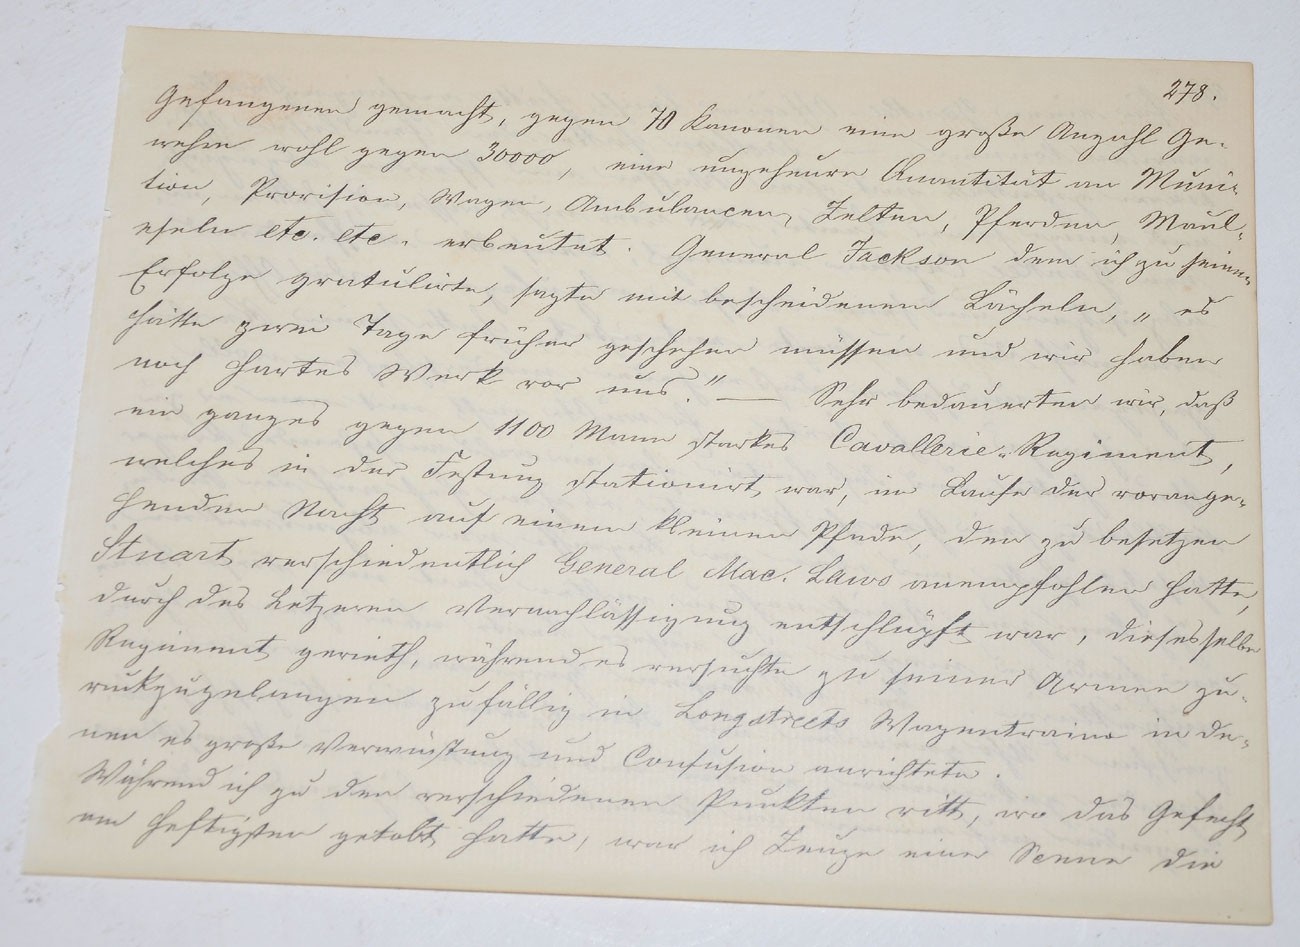 278.
Gefangenen gemacht, gegen 70 Kanonen eine große Anzahl Ge-
wehre wohl gegen 30000, eine ungeheure Quantität an Muni-
tion, Provision, Wagen, Ambulancen, Zelten, Pferden, Maul-
eseln etc. etc. erbeutet. General Jackson dem ich zu seinem
Erfolge gratulirte, sagte mit bescheidenem Lächeln, „es
hätte zwei Tage früher geschehen müssen und wir haben
noch hartes Werk vor uns." — Sehr bedauerten wir, daß
ein ganzes gegen 1100 Mann starkes Cavallerie-Regiment,
welches in der Festung stationirt war, im Laufe der vorange-
henden Nacht auf einem kleinen Pfade, den zu besetzen
Stuart verschiedentlich General Mac. Laws anempfohlen hatte,
durch des Letzeren Vernachlässigung entschlüpft war, dieses selbe
Regiment gerieth, während es versuchte zu seiner Armee zu-
rückzugelangen zufällig in Longstreets Wagentrains in de-
nen es große Verwüstung und Confusion anrichtete.
Während ich zu den verschiedenen Punkten ritt, wo das Gefecht
am heftigsten getobt hatte, war ich Zeuge einer Scene die